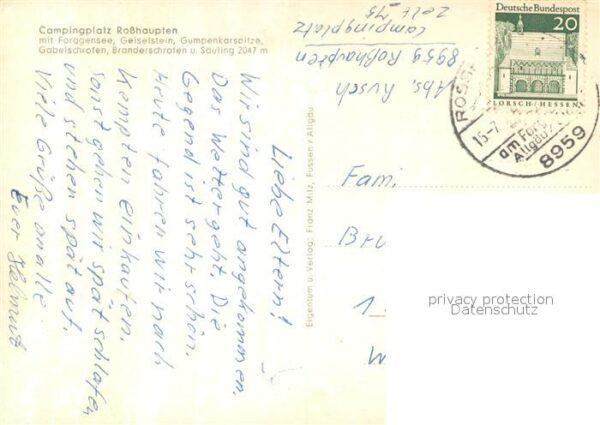 Campingplatz Roßhaupten
mit Forggensee, Geiselstein, Gumpenkarspitze,
Gabelschrofen, Branderschrofen u. Säuling 2047 m
Liebe Eltern!
Wir sind gut angekommen.
Das Wetter geht. Die
Gegend ist sehr schön.
Heute fahren wir nach
Kempten einkaufen.
Sonst gehen wir spät schlafen,
und stehen spät auf.
Viele Grüße an alle
Euer Helmut
Eigentum u. Verlag: Franz Milz, Füssen / Allgäu
Abs. Kusch
8959 Roßhaupten
Campingplatz
Zelt 75
Deutsche Bundespost
20
LORSCH/HESSEN
ROSSH
15-7
am Forg
Allgäu
8959
Fami
Bru
1
W
privacy protection
Datenschutz